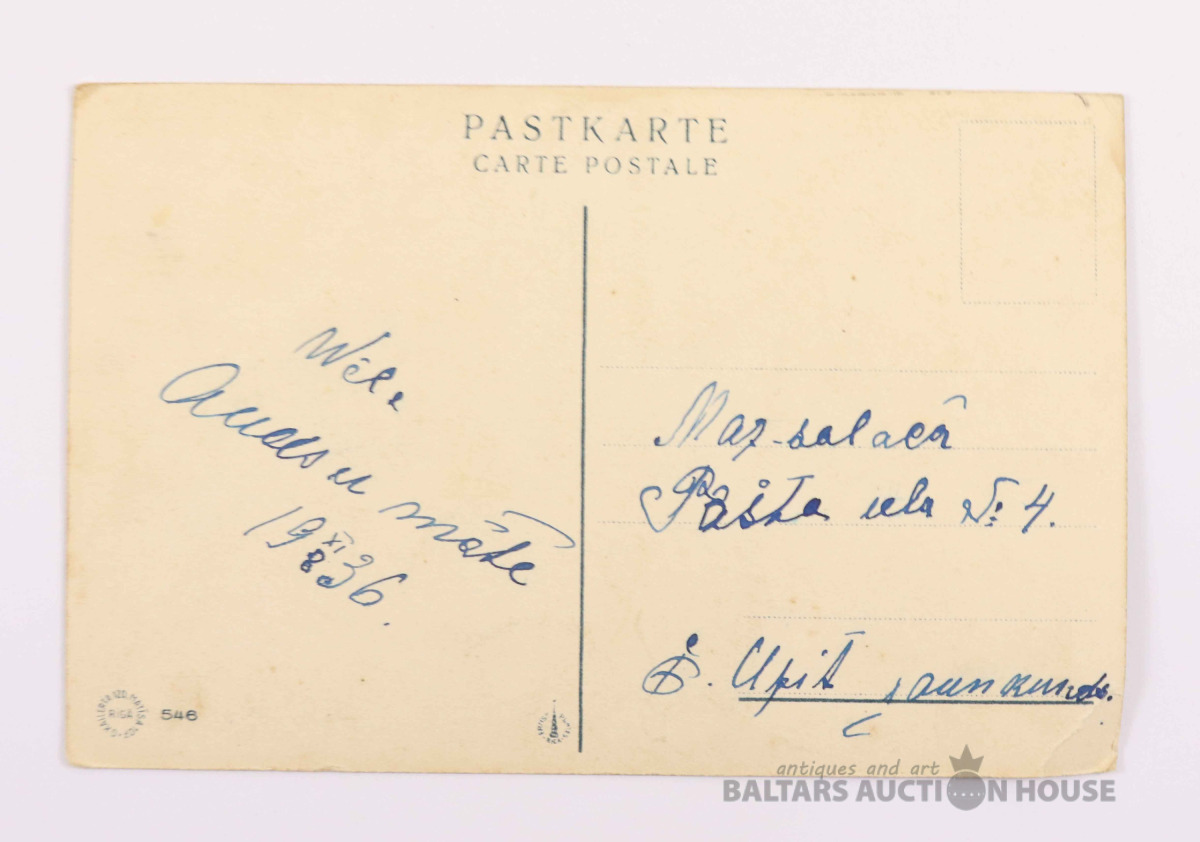 PASTKARTE
CARTE POSTALE
māte
19 XI 36.
8
Maz-salacā
Pasta ela № 4.
E. Upīt jaunkundz.
546
antiques and art
BALTARS AUCTION HOUSE